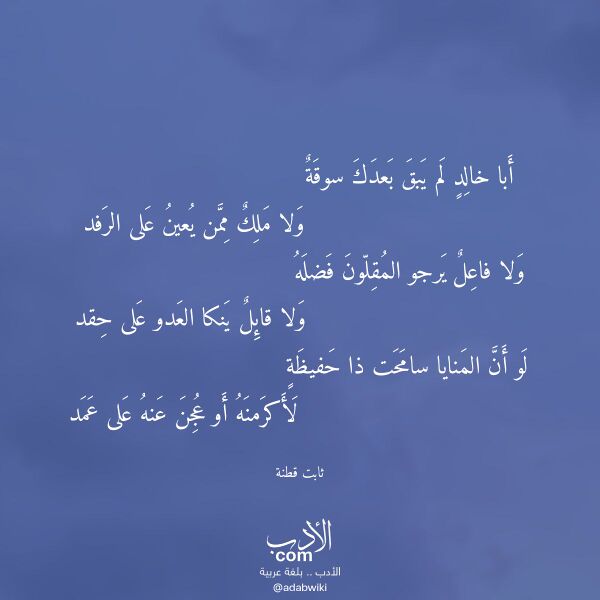 أَبا خالِدٍ لَم يَبقَ بَعدَكَ سوقَةٌ
وَلا مَلِكٌ مِمَّن يُعينُ عَلى الرَفد
وَلا فاعِلٌ يَرجو المُقِلّونَ فَضلَهُ
وَلا قايِلٌ يَنكا العَدو عَلى حِقد
لَو أَنَّ المَنايا سامَحَت ذا حَفيظَةٍ
لَأَكرَمنَهُ أَو عُجِنَ عَنهُ عَلى عَمَد
ثابت قطنة
الأدب
com
الأدب .. بلغة عربية
@adabwiki